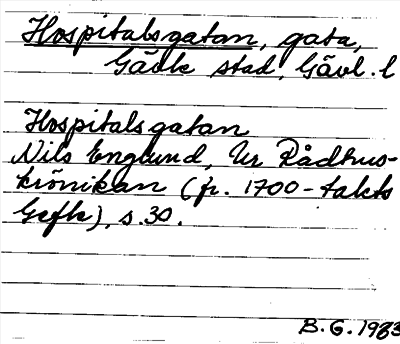 Hospitalsgatan, gata,
Gävle stad, Gävl. l
Hospitalsgatan
Nils Englund, Ur Rådhus-
krönikan (fr. 1700-talets
Gefle), s. 30.
B. G. 1983